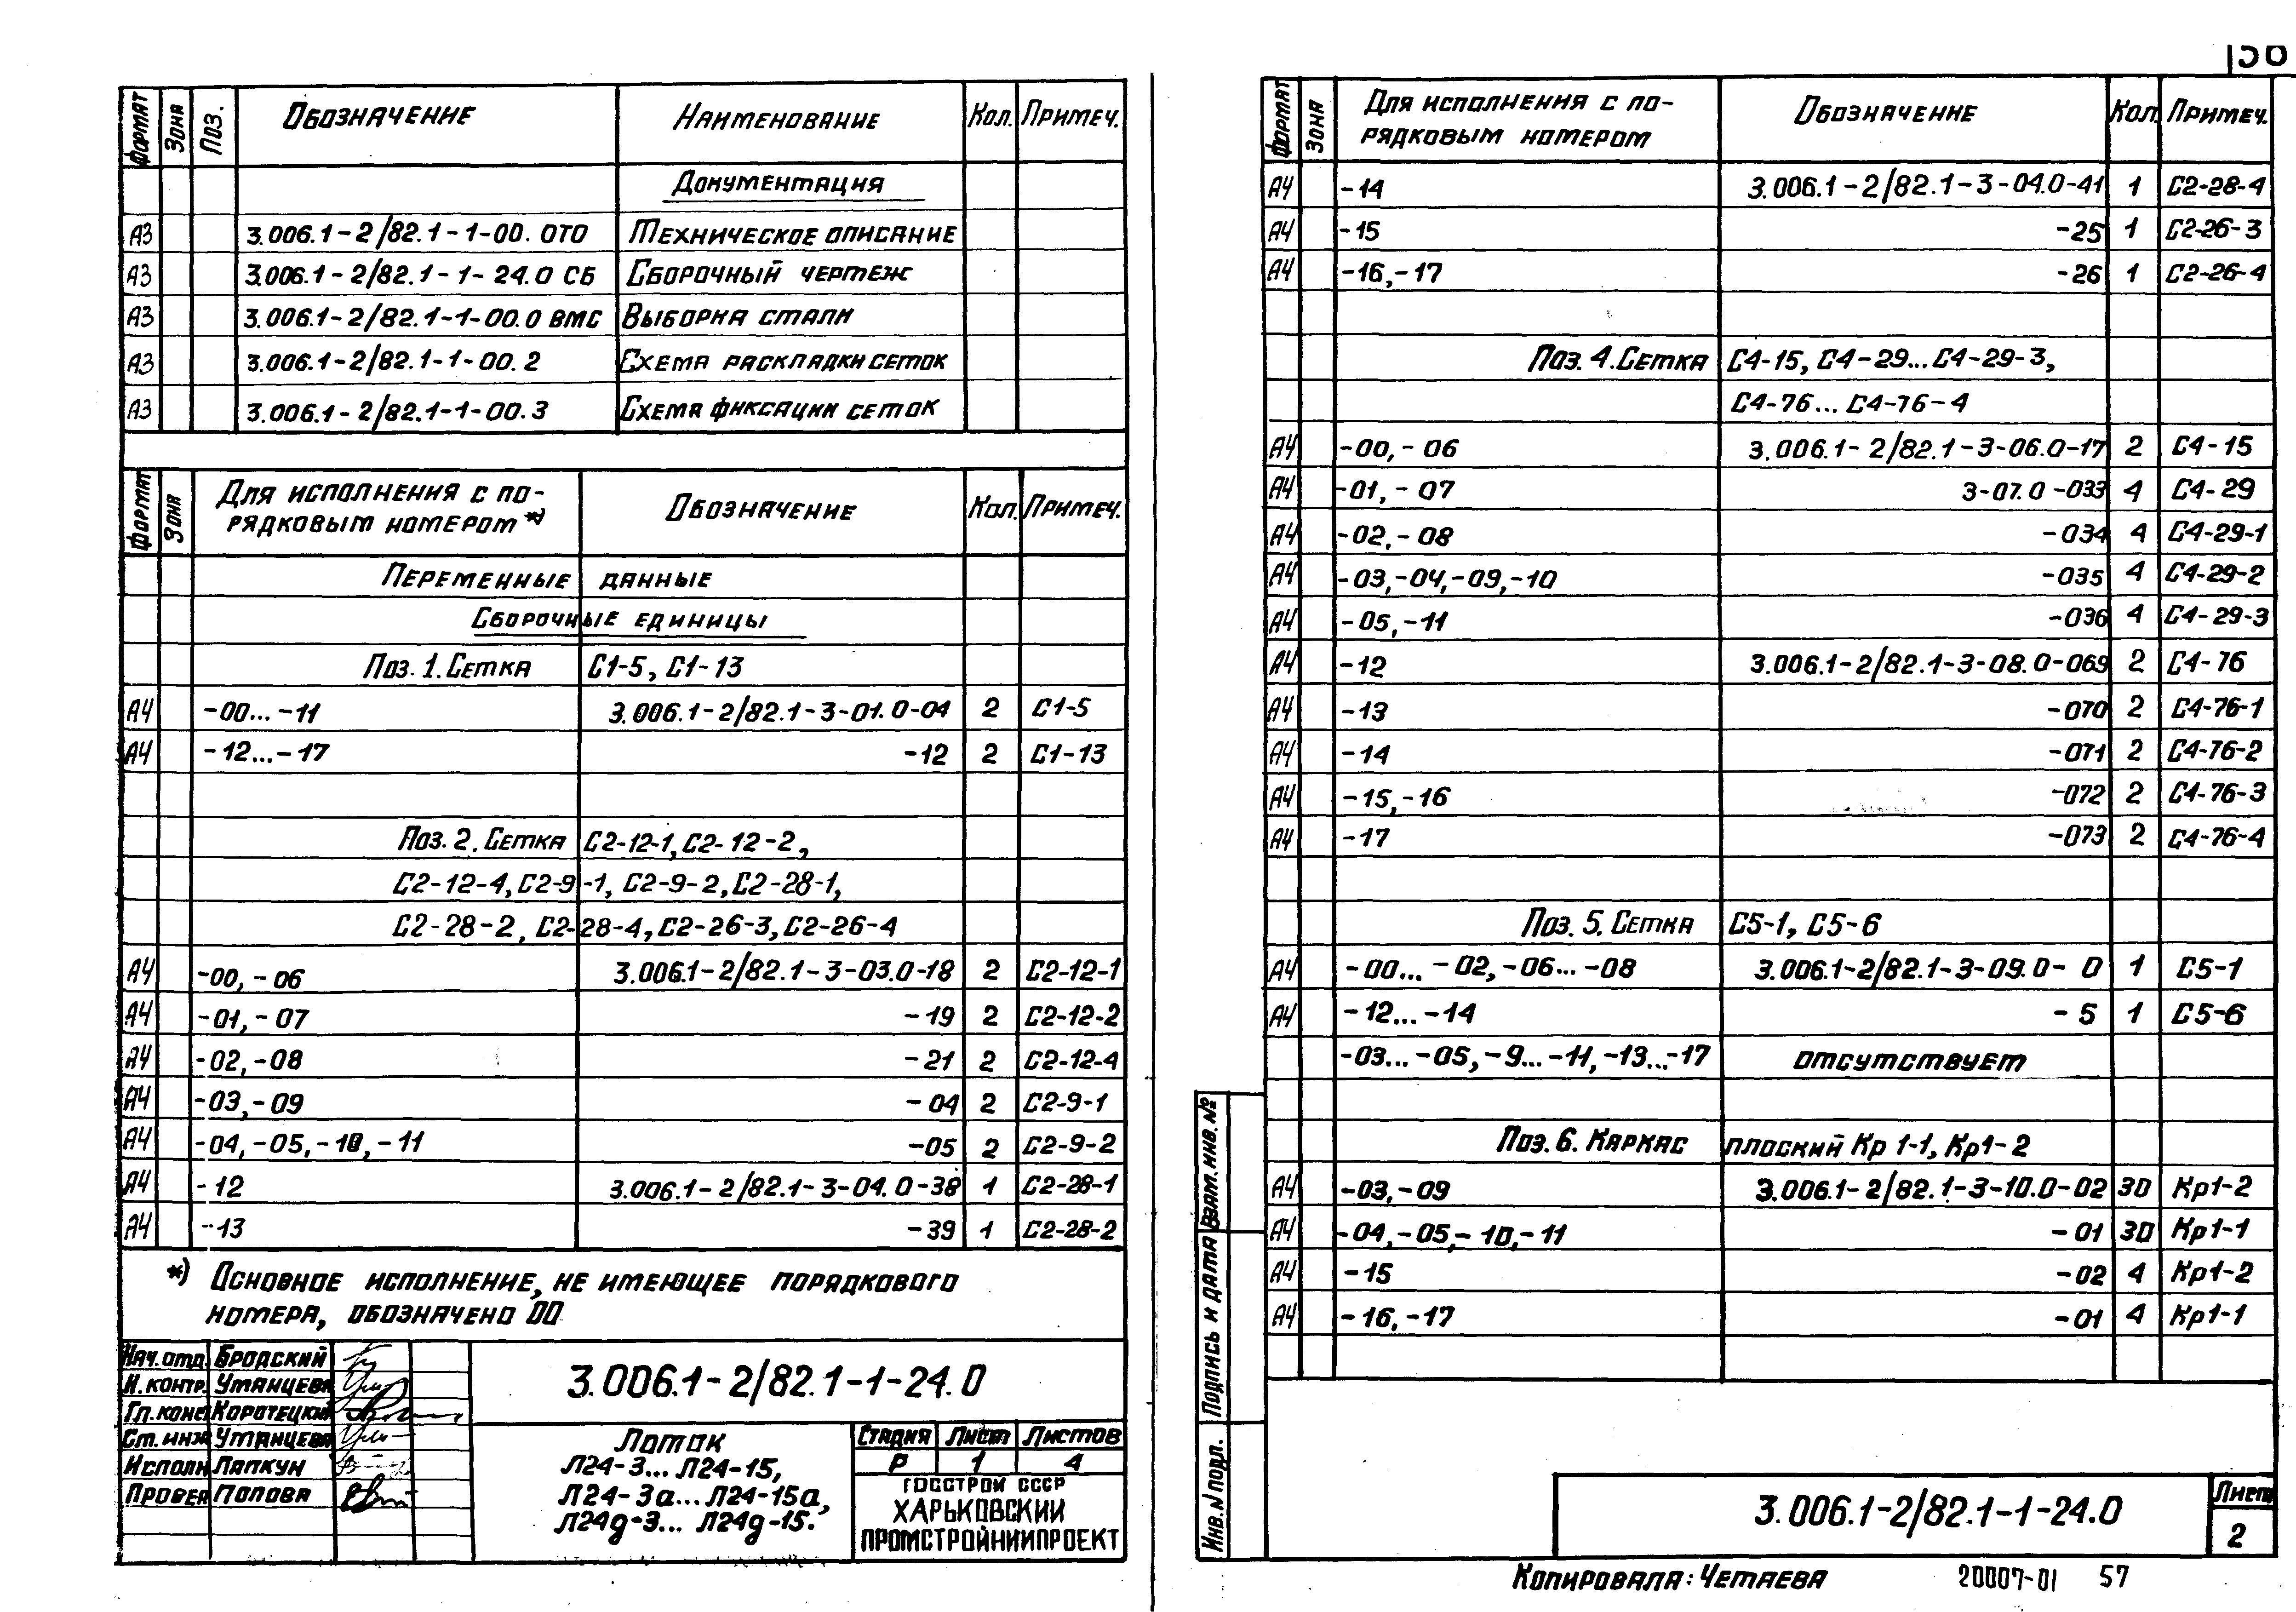 56
Формат Зона Поз. Обозначение Наименование Кол. Примеч.
Документация
А3 3.006.1-2/82.1-1-00.0ТО Техническое описание
А3 3.006.1-2/82.1-1-24.0 СБ Сборочный чертеж
А3 3.006.1-2/82.1-1-00.0 ВМС Выборка стали
А3 3.006.1-2/82.1-1-00.2 Схема раскладки сеток
А3 3.006.1-2/82.1-1-00.3 Схема фиксации сеток
Формат Зона Для исполнения с по-
рядковым номером *) Обозначение Кол. Примеч.
Переменные данные
Сборочные единицы
Поз. 1. Сетка С1-5, С1-13
А4 -00...-11 3.006.1-2/82.1-3-01.0-04 2 С1-5
А4 -12...-17 -12 2 С1-13
Поз. 2. Сетка С2-12-1, С2-12-2,
С2-12-4, С2-9-1, С2-9-2, С2-28-1,
С2-28-2, С2-28-4, С2-26-3, С2-26-4
А4 -00, -06 3.006.1-2/82.1-3-03.0-18 2 С2-12-1
А4 -01, -07 -19 2 С2-12-2
А4 -02, -08 -21 2 С2-12-4
А4 -03, -09 -04 2 С2-9-1
А4 -04, -05, -10, -11 -05 2 С2-9-2
А4 -12 3.006.1-2/82.1-3-04.0-38 1 С2-28-1
А4 -13 -39 1 С2-28-2
*) Основное исполнение, не имеющее порядкового
номера, обозначено 00
Нач. отд. Бродский
Н. контр. Уманцева
Гл. конс Коротецкий
Ст. инж Уманцева
Исполн Лапкун
Провер Попова
3.006.1-2/82.1-1-24.0
Лоток
Л24-3... Л24-15,
Л24-3а... Л24-15а,
Л24д-3... Л24д-15.
Стадия Лист Листов
Р 1 4
Госстрой СССР
Харьковский
Промстройниипроект
Формат Зона Для исполнения с по-
рядковым номером Обозначение Кол. Примеч.
А4 -14 3.006.1-2/82.1-3-04.0-41 1 С2-28-4
А4 -15 -25 1 С2-26-3
А4 -16, -17 -26 1 С2-26-4
Поз. 4. Сетка С4-15, С4-29... С4-29-3,
С4-76... С4-76-4
А4 -00, -06 3.006.1-2/82.1-3-06.0-17 2 С4-15
А4 -01, -07 3-07.0-033 4 С4-29
А4 -02, -08 -034 4 С4-29-1
А4 -03, -04, -09, -10 -035 4 С4-29-2
А4 -05, -11 -036 4 С4-29-3
А4 -12 3.006.1-2/82.1-3-08.0-069 2 С4-76
А4 -13 -070 2 С4-76-1
А4 -14 -071 2 С4-76-2
А4 -15, -16 -072 2 С4-76-3
А4 -17 -073 2 С4-76-4
Поз. 5. Сетка С5-1, С5-6
А4 -00... -02, -06... -08 3.006.1-2/82.1-3-09.0- 0 1 С5-1
А4 -12... -14 -5 1 С5-6
-03... -05, -9... -11, -13... -17 отсутствует
Поз. 6. Каркас плоский Кр 1-1, Кр1-2
А4 -03, -09 3.006.1-2/82.1-3-10.0-02 30 Кр1-2
А4 -04, -05, -10, -11 -01 30 Кр1-1
А4 -15 -02 4 Кр1-2
А4 -16, -17 -01 4 Кр1-1
Взам. инв. №
Подпись и дата
Инв. N подл.
3.006.1-2/82.1-1-24.0
Лист
2
Копировала: Четаева 20007-01 57